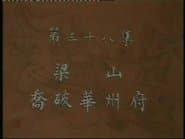 第三十八集
梁山
喬破華州府